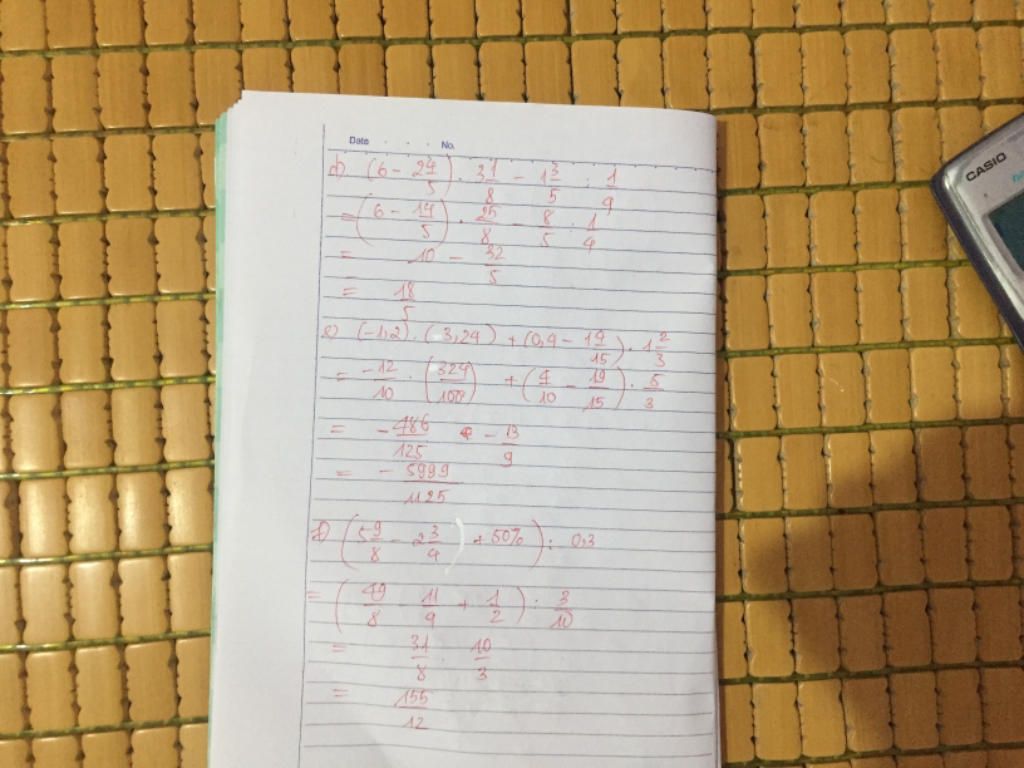 Date . . . No.
d) (6 - 2 4/5) . 3 1/8 - 1 3/5 : 1/4
= (6 - 14/5) . 25/8 - 8/5 : 1/4
= 10 - 32/5
= 18/5
e) (-1,2) . (3,24) + (0,4 - 19/15) . 1 2/3
= -12/10 . (324/100) + (4/10 - 19/15) . 5/3
= - 486/125 - 13/9
= - 5999/1125
f) (5 9/8 - 2 3/4) + 50%) : 0,3
= (49/8 - 11/4 + 1/2) : 3/10
= 31/8 . 10/3
= 155/12
CASIO